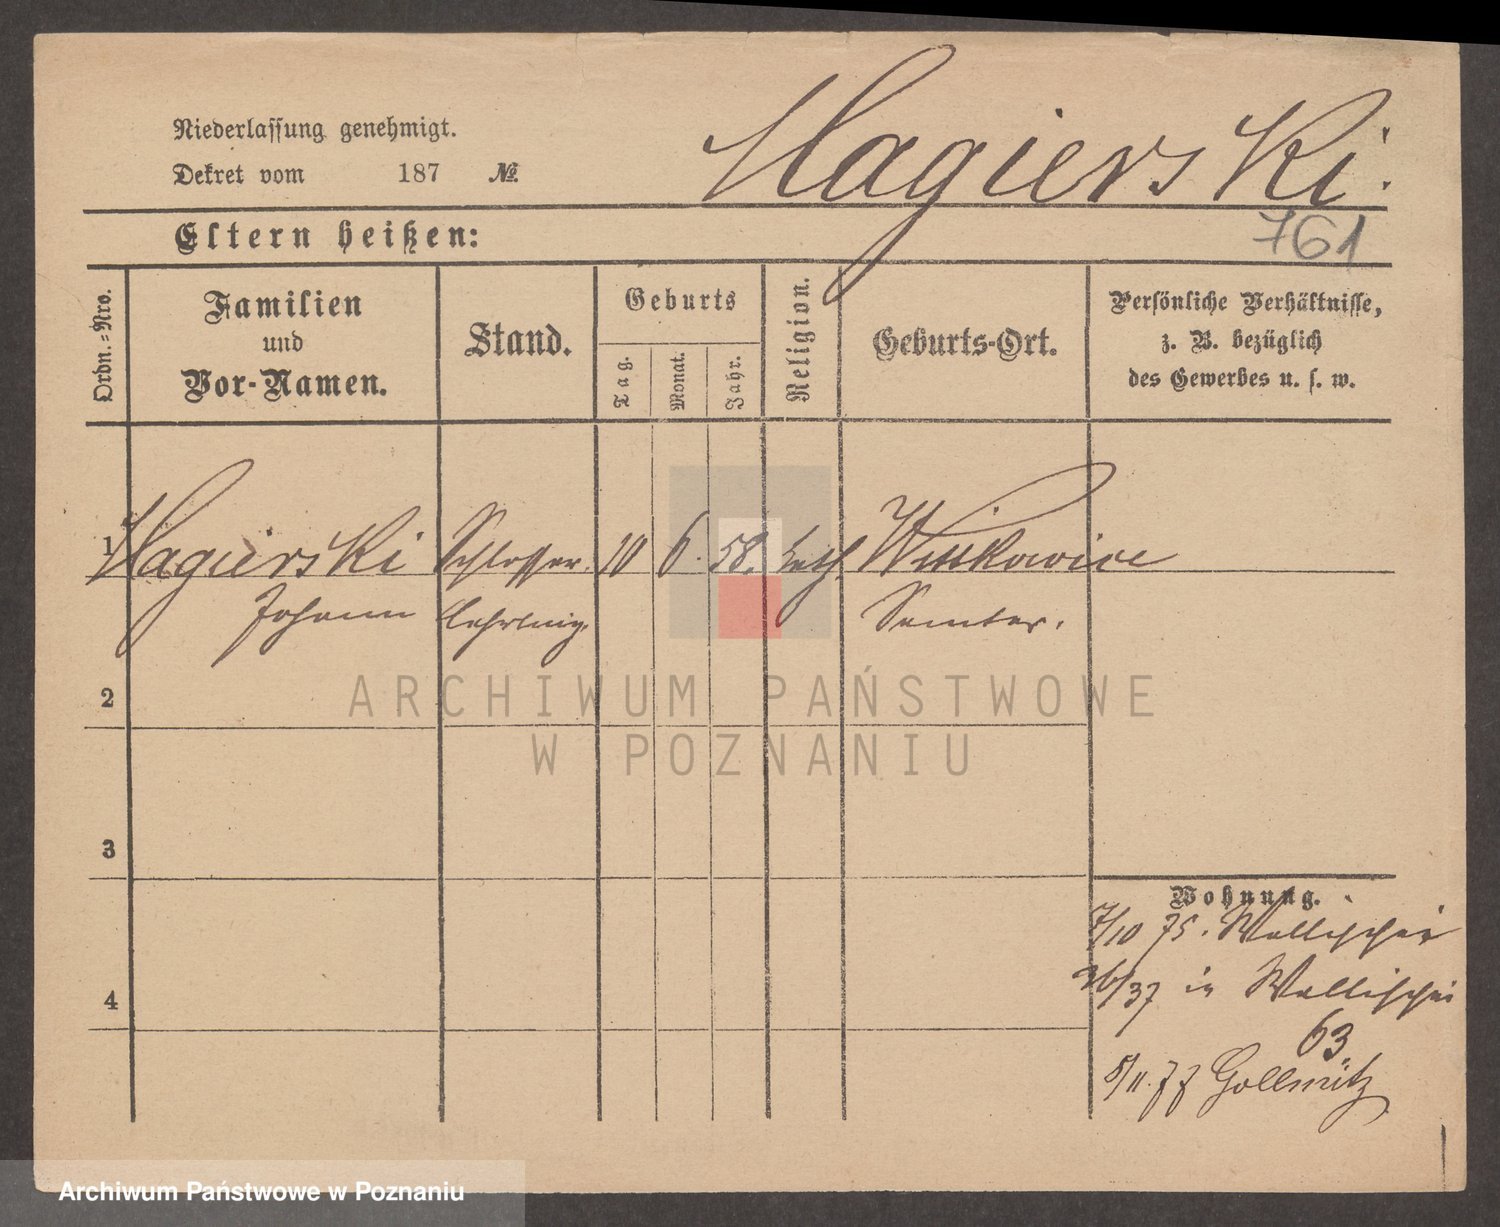 Niederlassung genehmigt.
Dekret vom 187 №
Hagierski.
761
Eltern heißen:
Ordn.-Nro.
Familien
und
Vor-Namen.
Stand.
Geburts
Tag.
Monat.
Jahr.
Religion.
Geburts-Ort.
Persönliche Verhältnisse,
z. B. bezüglich
des Gewerbes u. s. w.
1 Hagierski Schlosser 10 6. 58. kath. Witkowice
Johann lehrling. Samter.
2
ARCHIWUM PAŃSTWOWE
W POZNANIU
3
Wohnung.
7/10 75. Wallischei
36/37 in Wallischei
63
4
5/11. 77 Gollmütz
Archiwum Państwowe w Poznaniu